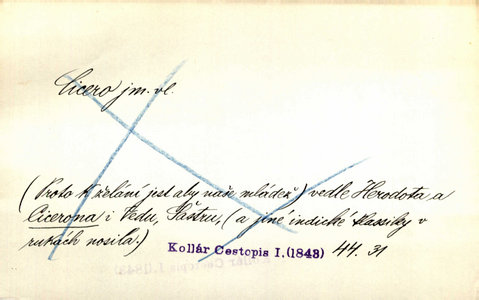 Cicero jm. vl.
(Proto k želání jest aby naše mládež) vedle Herodota a
Cicerona i Vedu, Šastru, (a jiné indické klassiky v
rukách nosila.)
Kollár Cestopis I. (1843) 44. 31